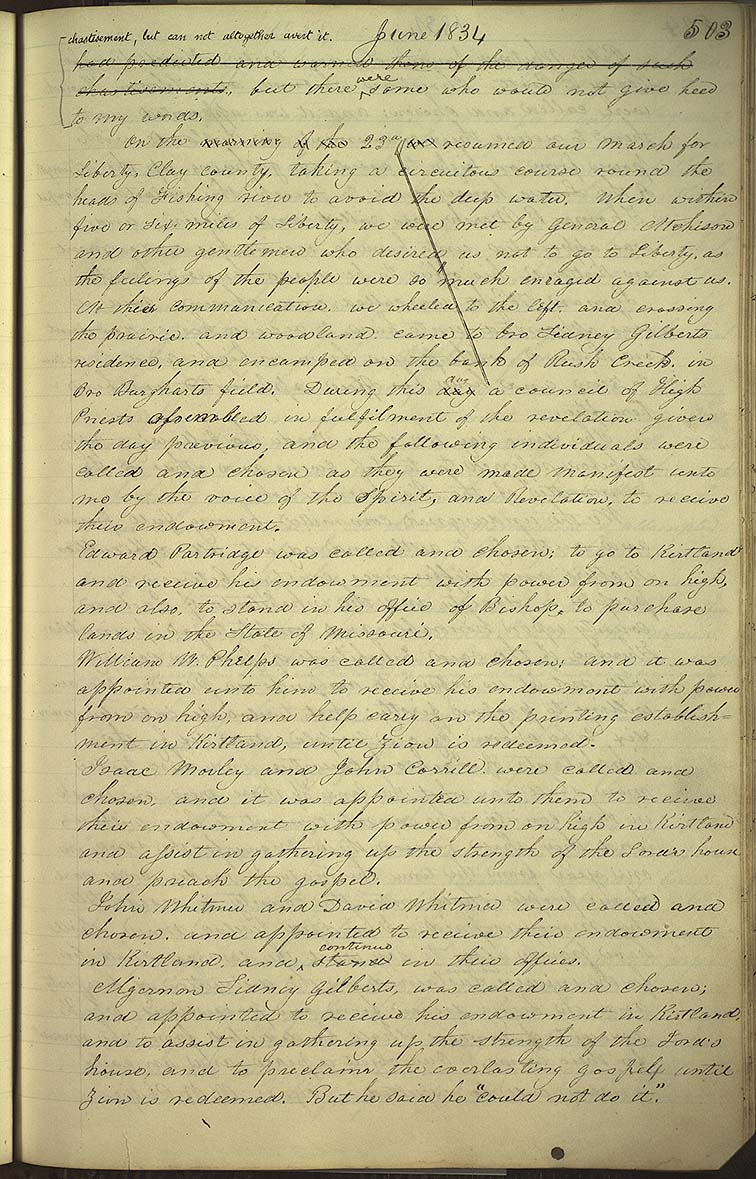 chastisement, but can not altogether avert it. June 1834 503
had predicted and warned them of the danger of such
chastisements, but there were some who would not give heed
to my words.
On the morning of the 23d we resumed our march for
Liberty, Clay county, taking a circuitous course round the
heads of Fishing river to avoid the deep water. When within
five or six miles of Liberty, we were met by General Atchison
and other gentlemen who desired us not to go to Liberty, as
the feelings of the people were so much enraged against us.
At their communication. we wheeled to the left. and crossing
the prairie. and woodland. came to bro Sidney Gilberts
residence, and encamped on the bank of Rush Creek. in
Bro Burgharts field. During this day a council of High
Priests assembled in fulfilment of the revelation given
the day previous, and the following individuals were
called and chosen as they were made manifest unto
me by the voice of the Spirit, and Revelation, to receive
their endowment.
Edward Partridge was called and chosen; to go to Kirtland
and receive his endowment with power from on high,
and also, to stand in his office of Bishop, to purchase
lands in the State of Missouri.
William W. Phelps was called and chosen; and it was
appointed unto him to receive his endowment with power
from on high, and help carry on the printing establish=
ment in Kirtland, until Zion is redeemed.
Isaac Morley and John Corrill. were called and
chosen, and it was appointed unto them to receive
their endowment with power from on high in Kirtland
and assist in gathering up the strength of the Lord's house
and preach the gospel.
John Whitmer and David Whitmer were called and
chosen. and appointed to receive their endowment
in Kirtland, and, stand continue in their offices.
Algernon Sidney Gilberts, was called and chosen;
and appointed to receive his endowment in Kirtland,
and to assist in gathering up the strength of the Lord's
house, and to proclaim the everlasting gospel until
Zion is redeemed. But he said he "could not do it".